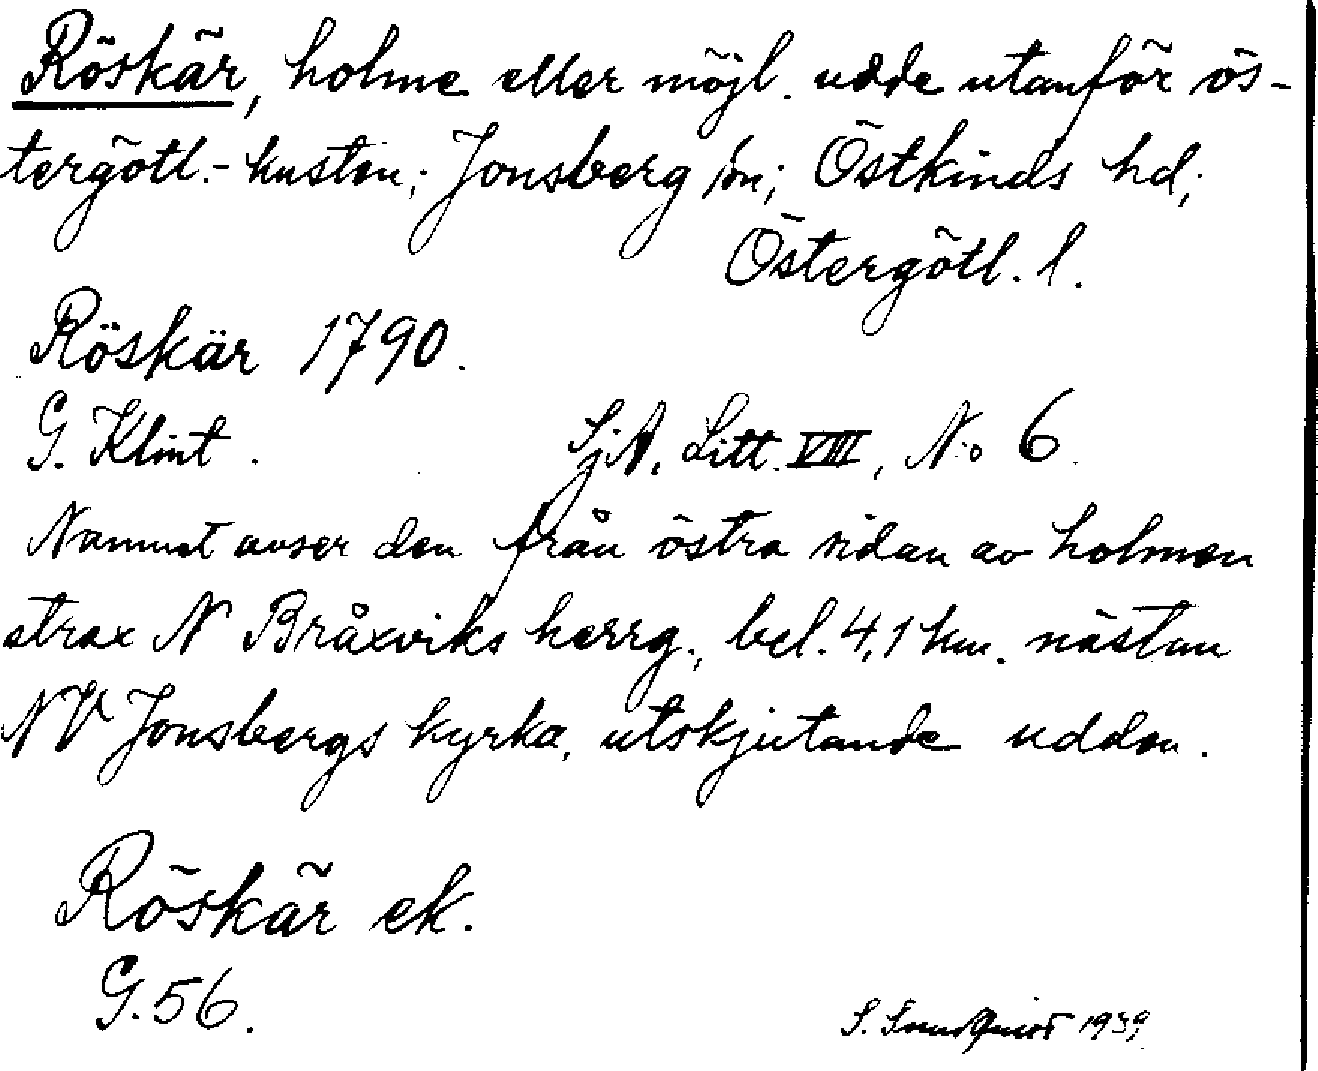 Röskär, holme eller möjl. udde utanför ös-
tergötl.-kusten; Jonsberg sn; Östkinds hd;
Östergötl. l.
Röskär 1790.
G. Klint. SjA, Litt. VIII, N:o 6.
Namnet avser den från östra sidan av holmen
strax N Bråxviks herrg., bel. 4,1 km. nästan
NV Jonsbergs kyrka, utskjutande udden.
Röskär ek.
G.56.
S. 1939